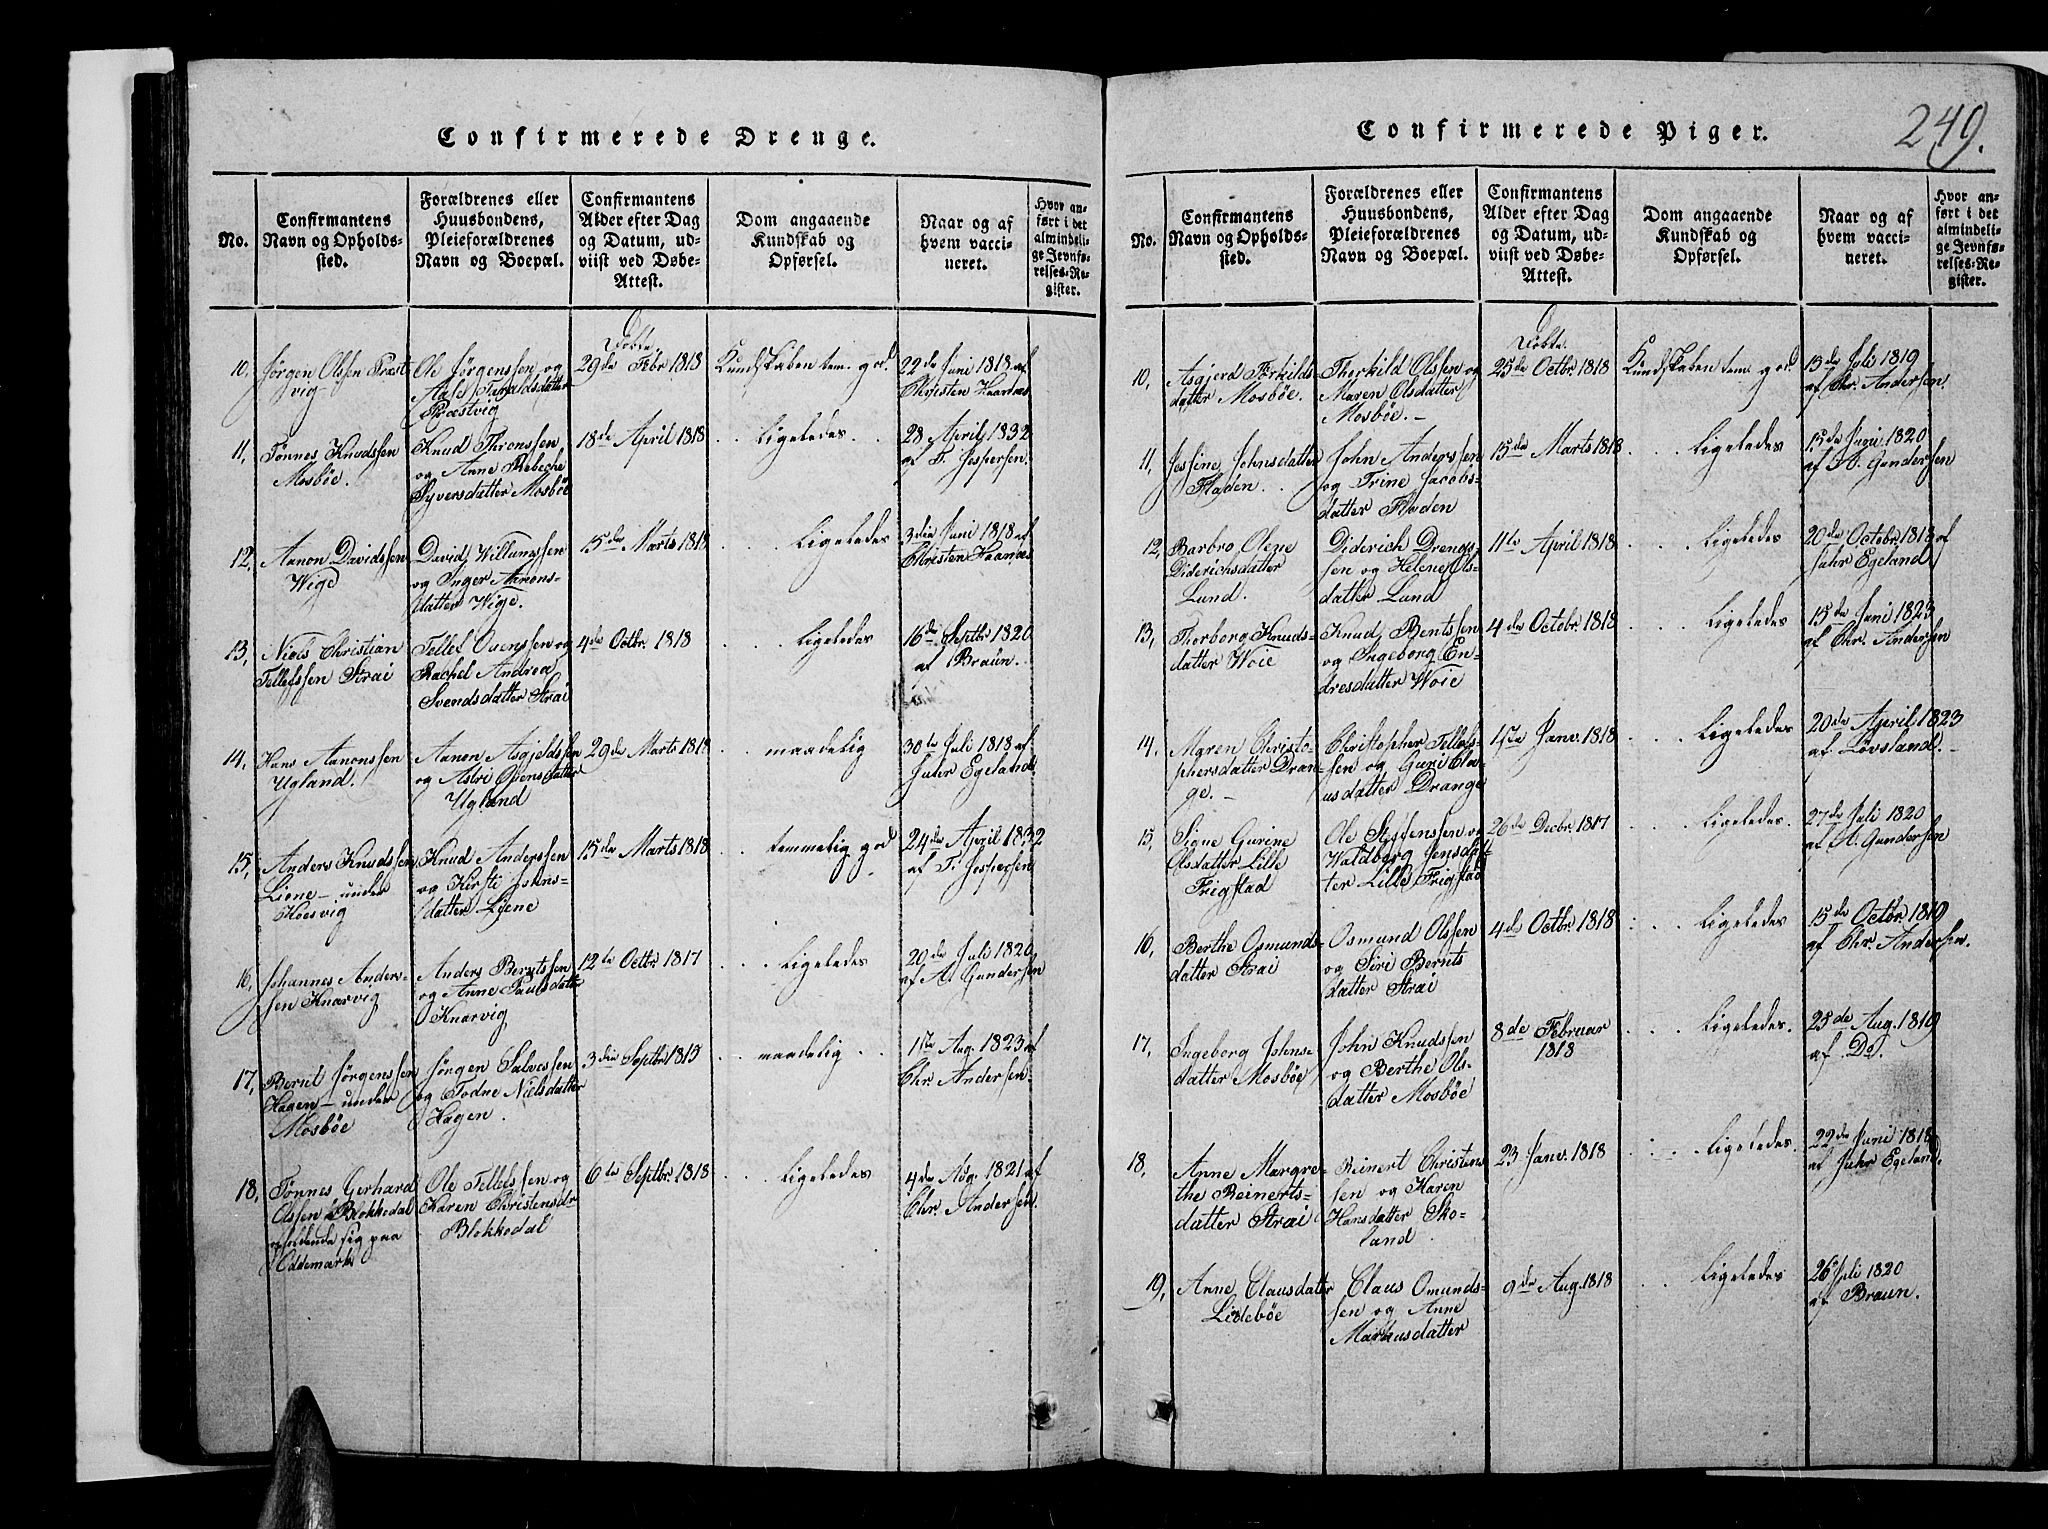 249.
Confirmerede Drenge.
No.
Confirmantens
Navn og Opholds-
sted.
Forældrenes eller
Huusbondens,
Pleieforældrenes
Navn og Boepæl.
Confirmantens
Alder efter Dag
og Datum, ud-
viist ved Døbe-
Attest.
Dom angaaende
Kundskab og
Opførsel.
Naar og af
hvem vacci-
neret.
Hvor an-
ført i det
almindeli-
ge Jevnfø-
relses-Re-
gister.
10,
Jørgen Olsen Præst
vig
Ole Jørgenssen og
Aase Taraldsdatter
Præstvig
Døbte.
29de Febr 1818
Kundskaben tem. god
22de Juni 1818 af
Christen Haanæs
11,
Tønnes Knudssen
Mosbøe.
Knud Thronssen
og Anne Rebeche
Syversdatter Mosbøe
18de April 1818
Ligeledes
28 April 1832
af T. Jespersen.
12,
Aanon Davidssen
Wige
David Willumssen
og Inger Aanons-
datter Wige.
15de Marts 1818
Ligeledes
3die Juni 1818 af
Christen Haanæs
13,
Niels Christian
Tellefssen Strai
Tellef Ouenssen og
Rachel Andrea
Svendsdatter Strai
4de Octbr. 1818
Ligeledes
16de Septbr 1820
af Braun.
14,
Hans Aanonssen
Ugland.
Aanon Asgjeldssen
og Astri Ouensdatter
Ugland
29de Marts 1818
maadelig
30te Juli 1818 af
Juhr Egeland
15,
Anders Knudssen
Liene - under
Høesvig
Knud Anderssen
og Kirsti Johns-
datter Liene
15de Marts 1818
temmelig god
24de April 1832
af T. Jespersen
16,
Johannes Anders-
sen Knarvig
Anders Berntssen
og Anne Paulsdatter
Knarvig
12te Octbr 1817
Ligeledes
20de Juli 1820
af A. Gundersen
17,
Bernt Jørgenssen
Hagen - under
Mosbøe
Jørgen Salvessen
og Todne Nielsdatter
Hagen.
3die Septbr 1815
maadelig
1ste Aug. 1823 af
Chr. Andersen.
18,
Tønnes Gerhard
Olssen Blokkedal
opholdende sig paa
Oddemark
Ole Tellefssen og
Karen Christensdr
Blokkedal
6te Septbr. 1818
Ligeledes
4de Aug. 1821 af
Chr. Andersen.
Confirmerede Piger.
No.
Confirmantens
Navn og Opholds-
sted.
Forældrenes eller
Huusbondens,
Pleieforældrenes
Navn og Boepæl.
Confirmantens
Alder efter Dag
og Datum, ud-
viist ved Døbe-
Attest.
Dom angaaende
Kundskab og
Opførsel.
Naar og af
hvem vacci-
neret.
Hvor an-
ført i det
almindeli-
ge Jevnfø-
relses-Re-
gister.
10,
Asgjerd Terkilds-
datter Mosbøe.
Therkild Olssen og
Maren Olsdatter
Mosbøe.
Døbte.
25de Octbr 1818
Kundskaben tem. god
13de Juli 1819
af Chr. Andersen.
11,
Jessine Johnsdatter
Fladen.
John Anderssen
og Trine Jacobs-
datter Fladen
15de Marts 1818
Ligeledes
15de Juni 1820
af A. Gundersen
12,
Barbro Olene
Diderichsdatter
Lund.
Diderich Drengs-
sen og Helene Ols-
datter Lund
11te April 1818
Ligeledes
20de Octobr. 1818 af
Juhr Egeland
13,
Thorborg Knuds-
datter Woie
Knud Bentssen
og Ingeborg En-
dresdatter Woie
4de Octobr. 1818
Ligeledes
15de Juni 1823
af Chr. Andersen
14,
Maren Christo-
phersdatter Dran-
ge.
Christopher Tellefs-
sen og Guri Cla-
usdatter Drange
17de Janv. 1818
Ligeledes
20de April 1823
af Løvsland.
15,
Signe Gurine
Olsdatter Lille
Frigstad
Ole Steffenssen og
Waldborg Jensdat-
ter Lille Frigstad
26de Decbr. 1817
Ligeledes
27de Juli 1820
af A. Gundersen
16,
Berthe Osmunds-
datter Strai
Osmund Olssen
og Siri Bernts
datter Strai
4de Octbr. 1818
Ligeledes
15de Octbr. 1819
af Chr. Andersen.
17,
Ingeborg Johns-
datter Mosbøe
John Knudssen
og Berthe Ols-
datter Mosbøe
8de Februar
1818
Ligeledes.
25de Aug. 1819
af Do.
18,
Anne Margre-
the Reinerts-
datter Strai
Reinert Christens
sen og Karen
Hansdatter Sko-
land.
23 Janv. 1818
Ligeledes.
22de Juni 1818
af Juhr Egeland.
19,
Anne Clausdatter
Lidebøe
Claus Omunds-
sen og Anne
Markusdatter
9de Aug. 1818
Ligeledes
26 Juli 1820
af Braun.